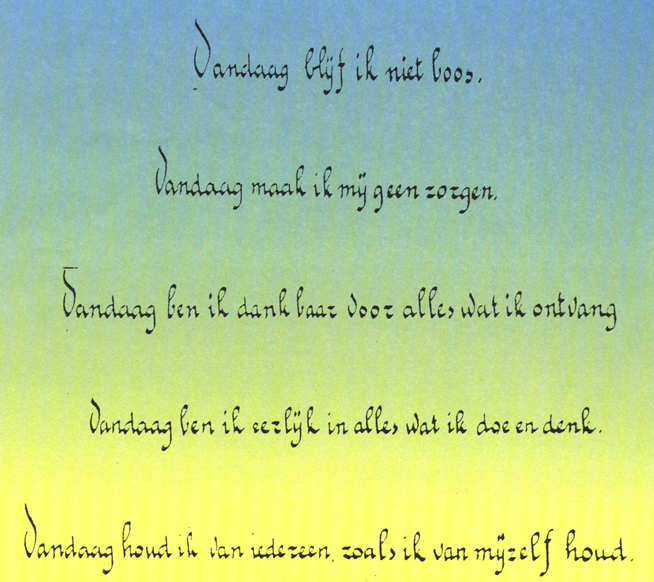 Vandaag blijf ik niet boos.
Vandaag maak ik mij geen zorgen.
Vandaag ben ik dankbaar voor alles wat ik ontvang
Vandaag ben ik eerlijk in alles wat ik doe en denk.
Vandaag houd ik van iedereen, zoals ik van mijzelf houd.